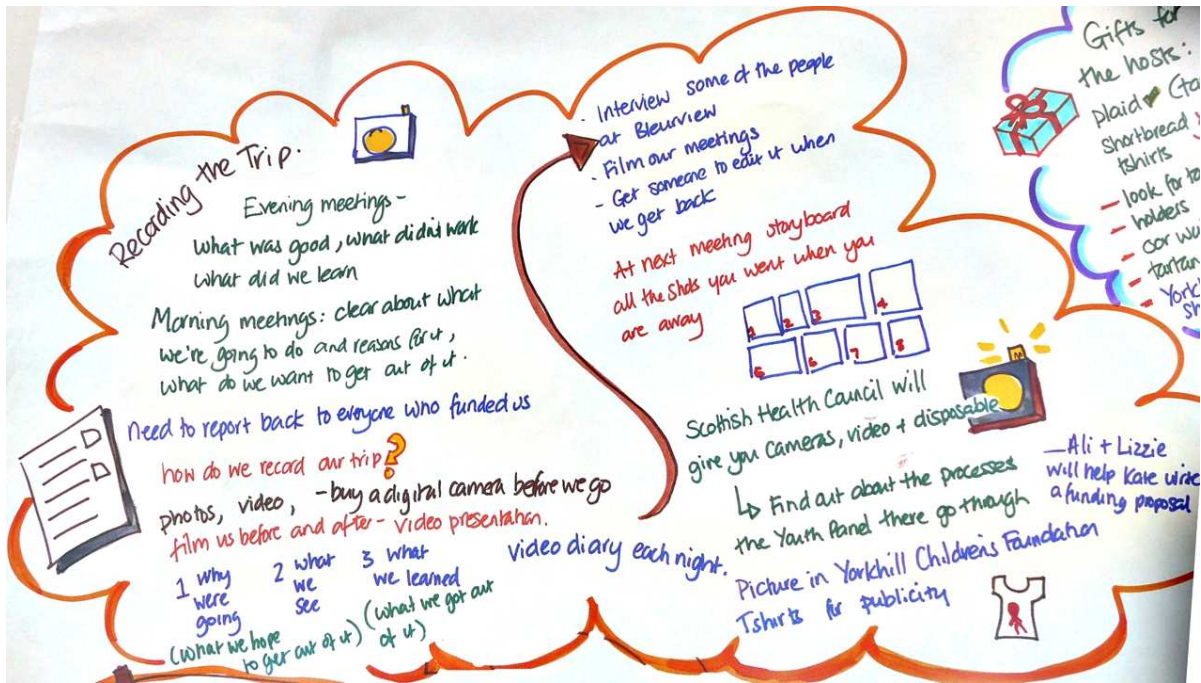 Recording the Trip.
Evening meetings -
what was good, what didn't work
what did we learn
Morning meetings: clear about what
we're going to do and reasons for it,
what do we want to get out of it.
need to report back to everyone who funded us
how do we record our trip?
photos, video, - buy a digital camera before we go
film us before and after - video presentation.
1 why
were
going
2 what
we
see
3 what
we learned
(what we hope
to get out of it)
(what we got out
of it)
video diary each night.
- Interview some of the people
at Bleurview
- Film our meetings
- Get someone to edit it when
we get back
At next meeting storyboard
all the shots you went when you
are away
1 2 3 4
5 6 7 8
Scottish Health Council will
give you cameras, video + disposable
↳ Find out about the processes
the Youth Panel there go through
- Ali + Lizzie
will help Kate
a funding proposal
Picture in Yorkhill Children's Foundation
Tshirts for publicity
Gifts for
the hosts:
plaid
shortbread
tshirts
- look for
holders
-
- tartan
-